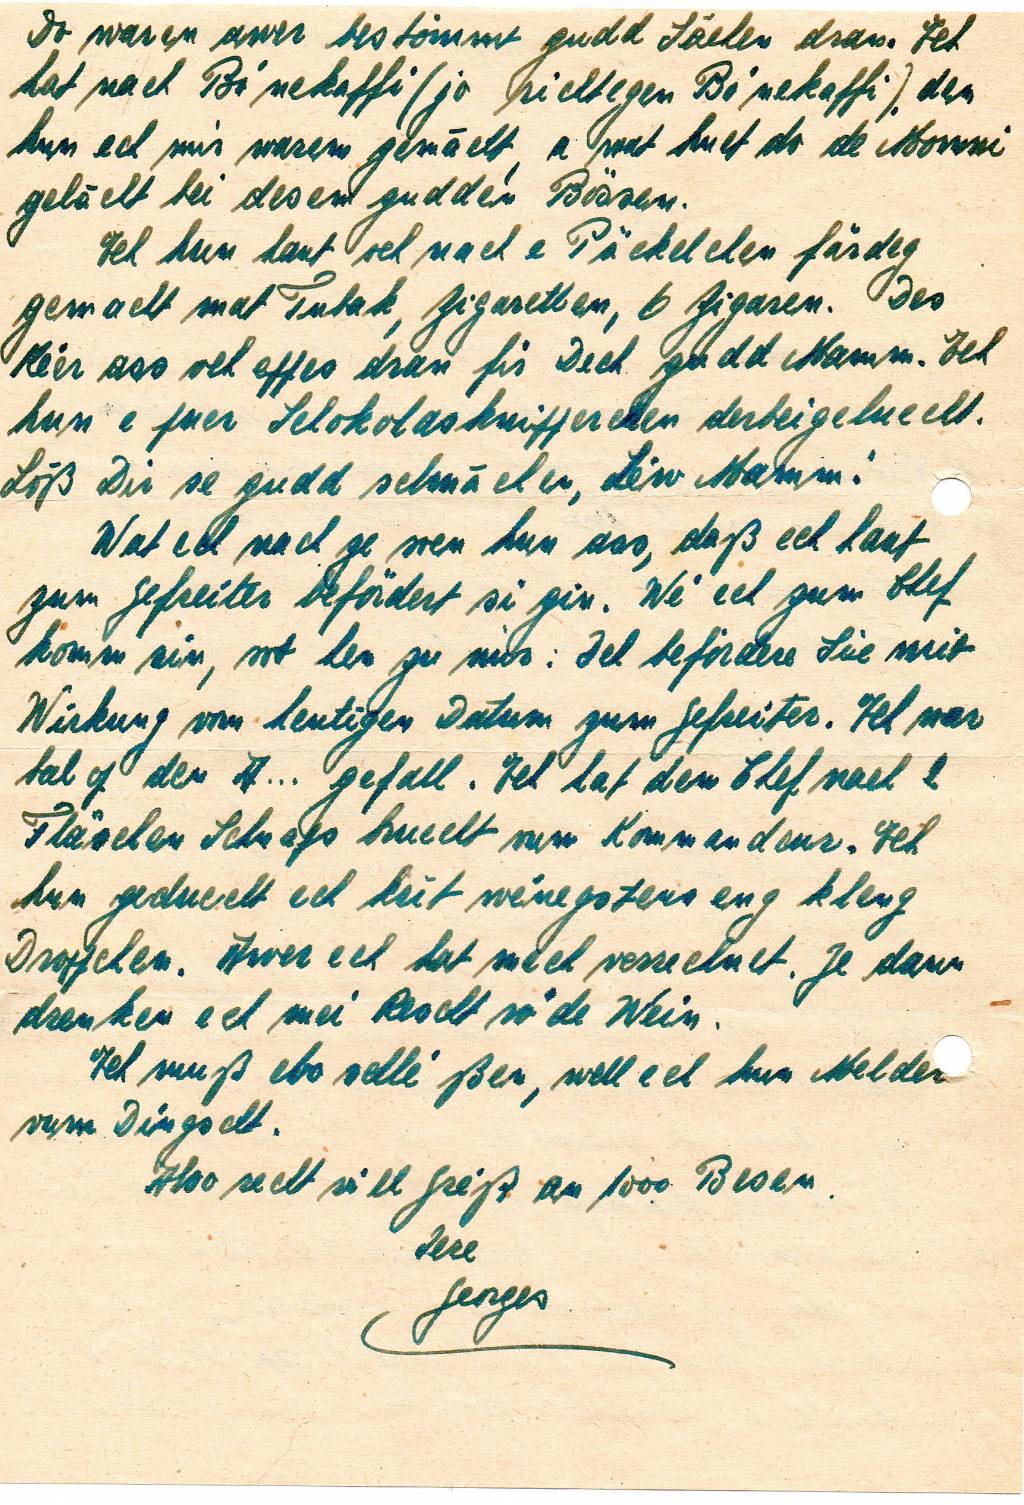 Do waren awer bestömmt gudd Sächen dran. Ech
hat nach Bó'nekaffi (jo richtegen Bó'nekaffi), den
hun ech mir warem gemächt, a wat huet do de Mommi
gelächt bei desem gudden Bössen.
Ech hun haut och nach e Päckelchen färdeg
gemacht mat Tubak, Zigaretten, 6 Zigaren. Des
Kéer ass och effes dran fir Dech gudd Mamm. Ech
hun e puer Schokolaskniffercher derbeigeluecht.
Lóß Dir se gudd schmächen, léiw Mamm!
Wat ech nach ge wen hun ass, daß ech haut
zum Gefreiter befördert si gin. Wé ech zum Chef
komm sin, sot hen zu mir: Ich befördere Sie mit
Wirkung vom heutigen Datum zum Gefreiter. Ech war
bal op den A... gefall. Ech hat dem Chef nach 2
Fläschen Schnaps bruecht vum Kommandeur. Ech
hun geduecht ech krit wéinegstens eng kleng
Dröppchen. Äwer ech hat mech verrechnet. Je dann
drenken ech mei Rescht ro'de Wein.
Ech muß elo schléißen, well ech hun Melder
vum Dingscht.
Also recht vill Gréiß an 1000 Besen.
Jere
Georges